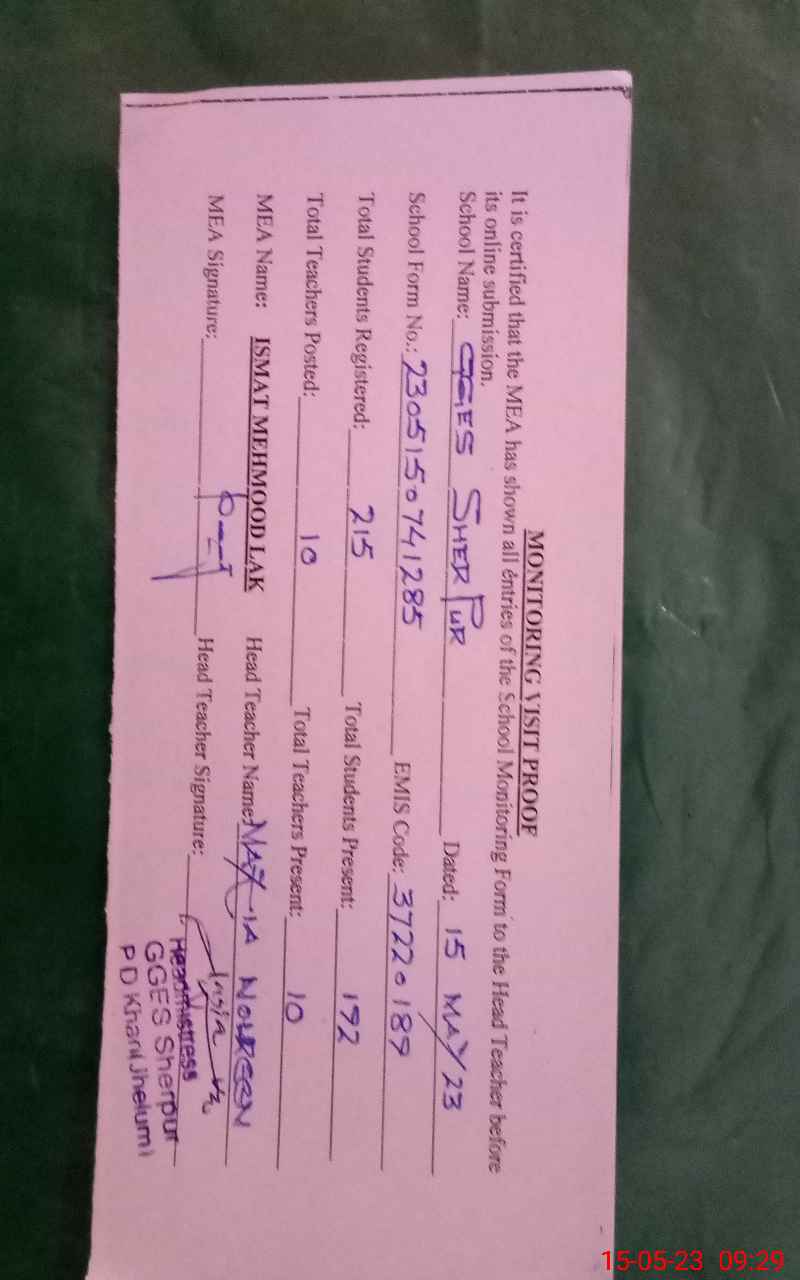 MONITORING VISIT PROOF
It is certified that the MEA has shown all entries of the School Monitoring Form to the Head Teacher before
its online submission.
School Name: GGES SHER PUR Dated: 15 MAY 23
School Form No.: 230515150741285 EMIS Code: 37220189
Total Students Registered: 215 Total Students Present: 192
Total Teachers Posted: 10 Total Teachers Present: 10
MEA Name: ISMAT MEHMOOD LAK Head Teacher Name: NOUREEN
MEA Signature: Head Teacher Signature:
Headmistress
GGES Sherpur
P D Khan(Jhelum)
15-05-23 09:29